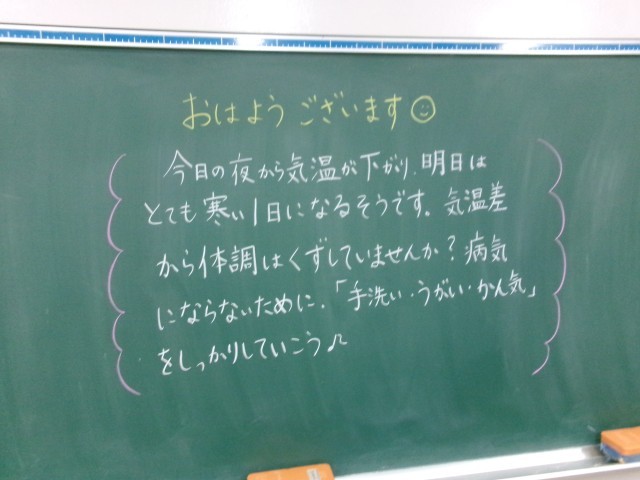 おはようございます☺
今日の夜から気温が下がり、明日は
とても寒い1日になるそうです。気温差
から体調はくずしていませんか？病気
にならないために、「手洗い・うがい・かん気」
をしっかりしていこう♪